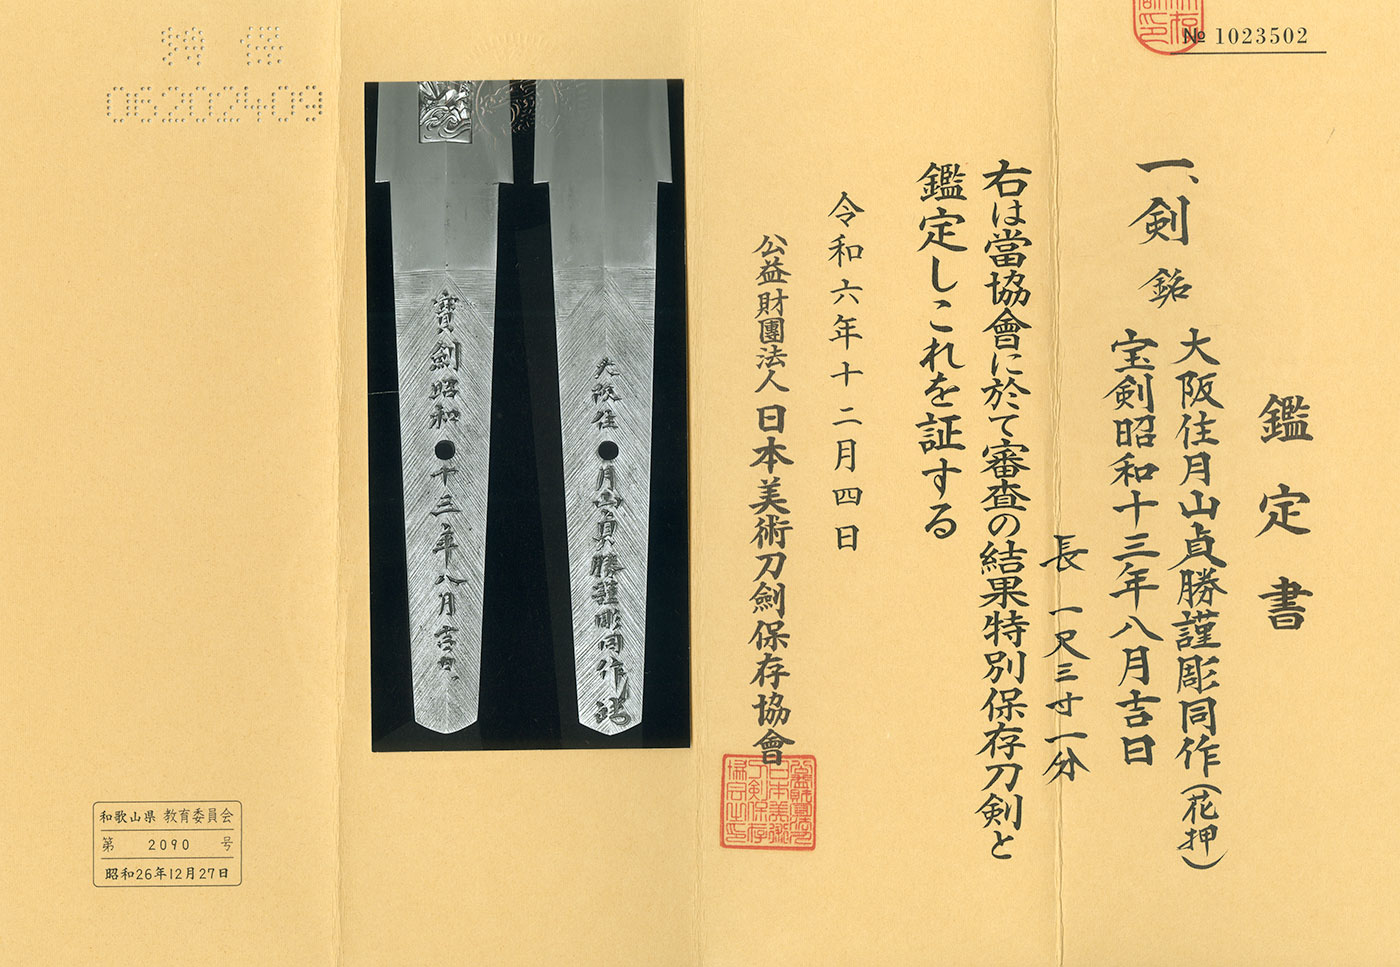 № 1023502
鑑定書
一、剣 銘 大阪住月山貞勝謹彫同作（花押）
宝剣昭和十三年八月吉日
長 一尺三寸一分
右は當協會に於て審査の結果特別保存刀剣と
鑑定しこれを証する
令和六年十二月四日
公益財團法人 日本美術刀劍保存協會
大阪住月山貞勝謹彫同作
寶劍昭和十三年八月吉日
特保
06202409
和歌山県 教育委員会
第 2090 号
昭和26年12月27日